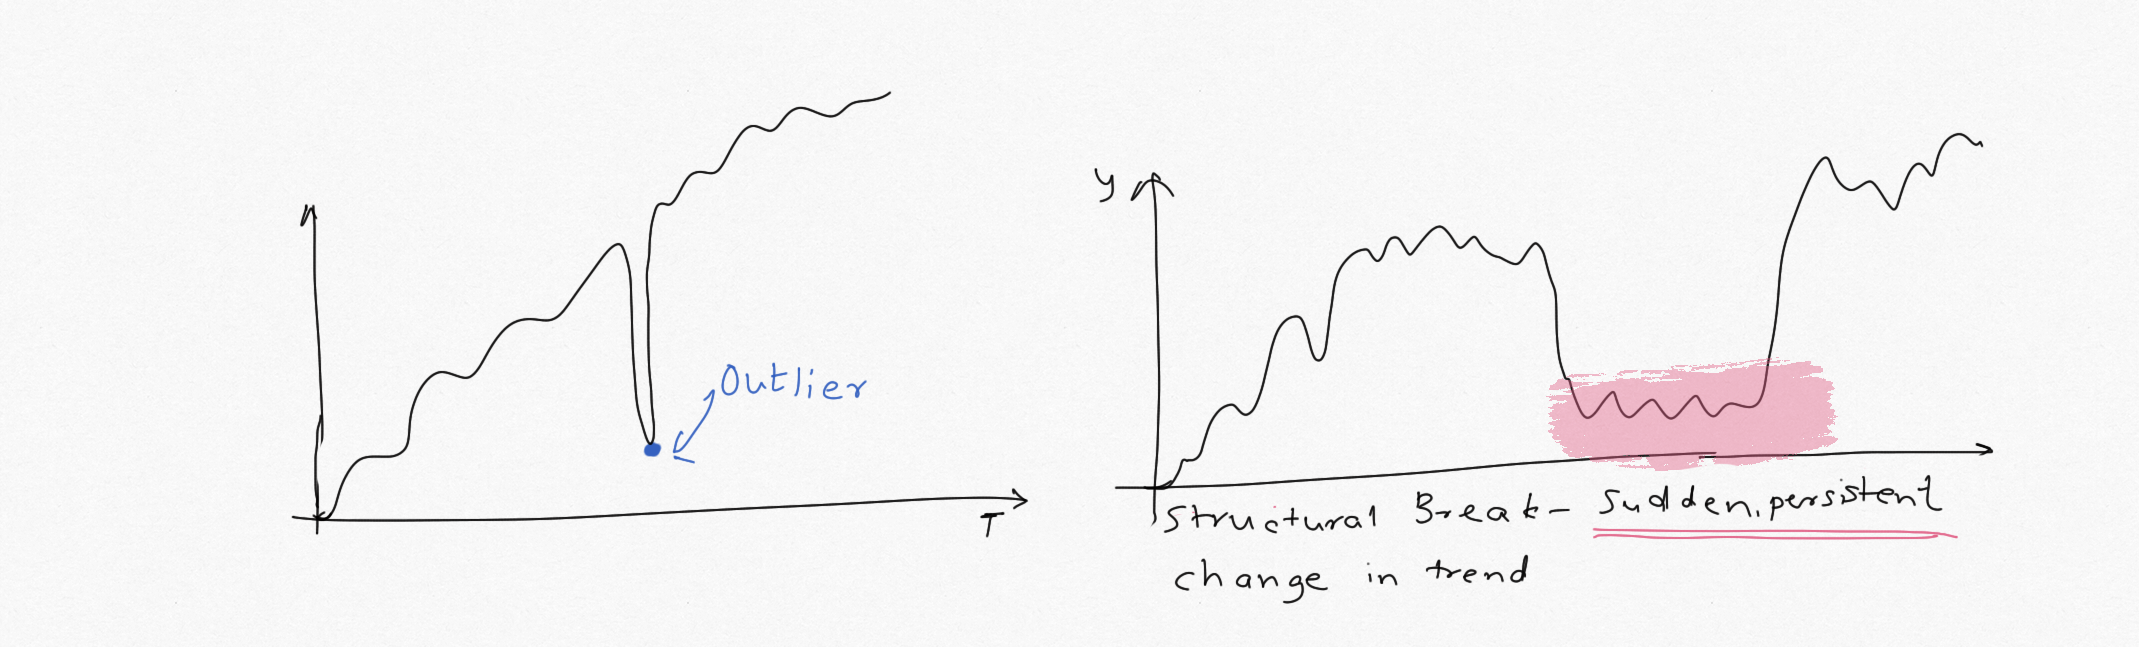 Outlier
T
y
Structural Break - Sudden, persistent
change in trend